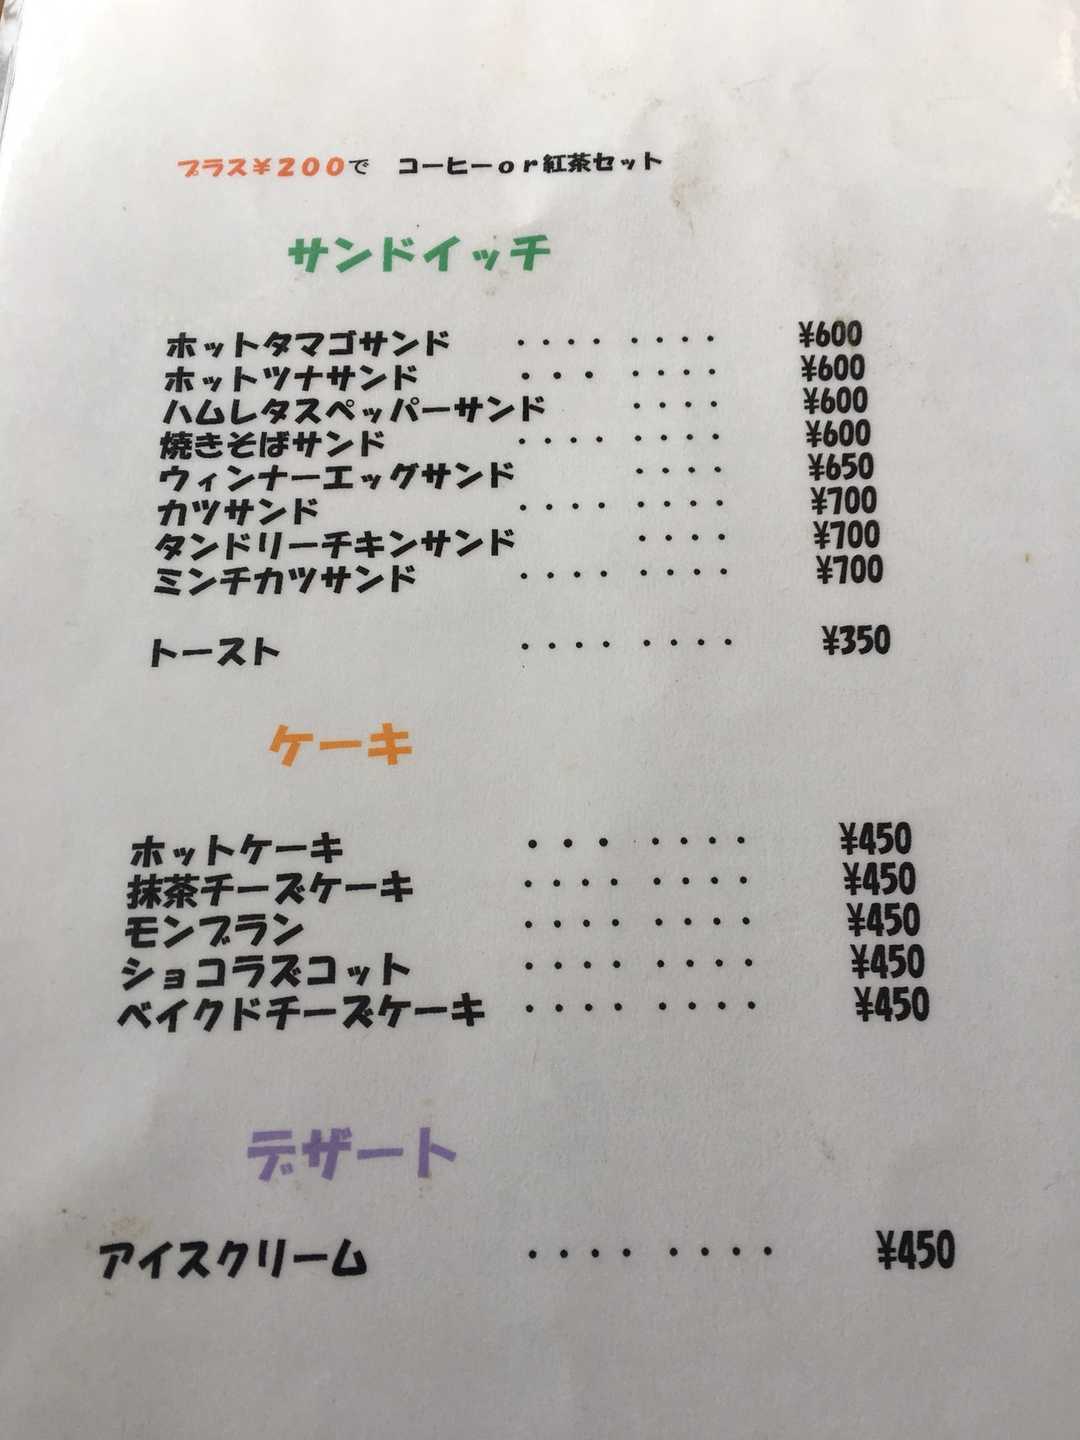 プラス¥200で　コーヒーor紅茶セット
サンドイッチ
ホットタマゴサンド ・・・・ ・・・・ ¥600
ホットツナサンド ・・・ ・・・・ ¥600
ハムレタスペッパーサンド ・・・・ ¥600
焼きそばサンド ・・・・ ・・・・ ¥600
ウィンナーエッグサンド ・・・・ ¥650
カツサンド ・・・・ ・・・・ ¥700
タンドリーチキンサンド ・・・・ ¥700
ミンチカツサンド ・・・・ ・・・・ ¥700
トースト ・・・・ ・・・・ ¥350
ケーキ
ホットケーキ ・・・ ・・・・ ¥450
抹茶チーズケーキ ・・・・ ・・・・ ¥450
モンブラン ・・・・ ・・・・ ¥450
ショコラズコット ・・・・ ・・・・ ¥450
ベイクドチーズケーキ ・・・・ ・・・・ ¥450
デザート
アイスクリーム ・・・・ ・・・・ ¥450